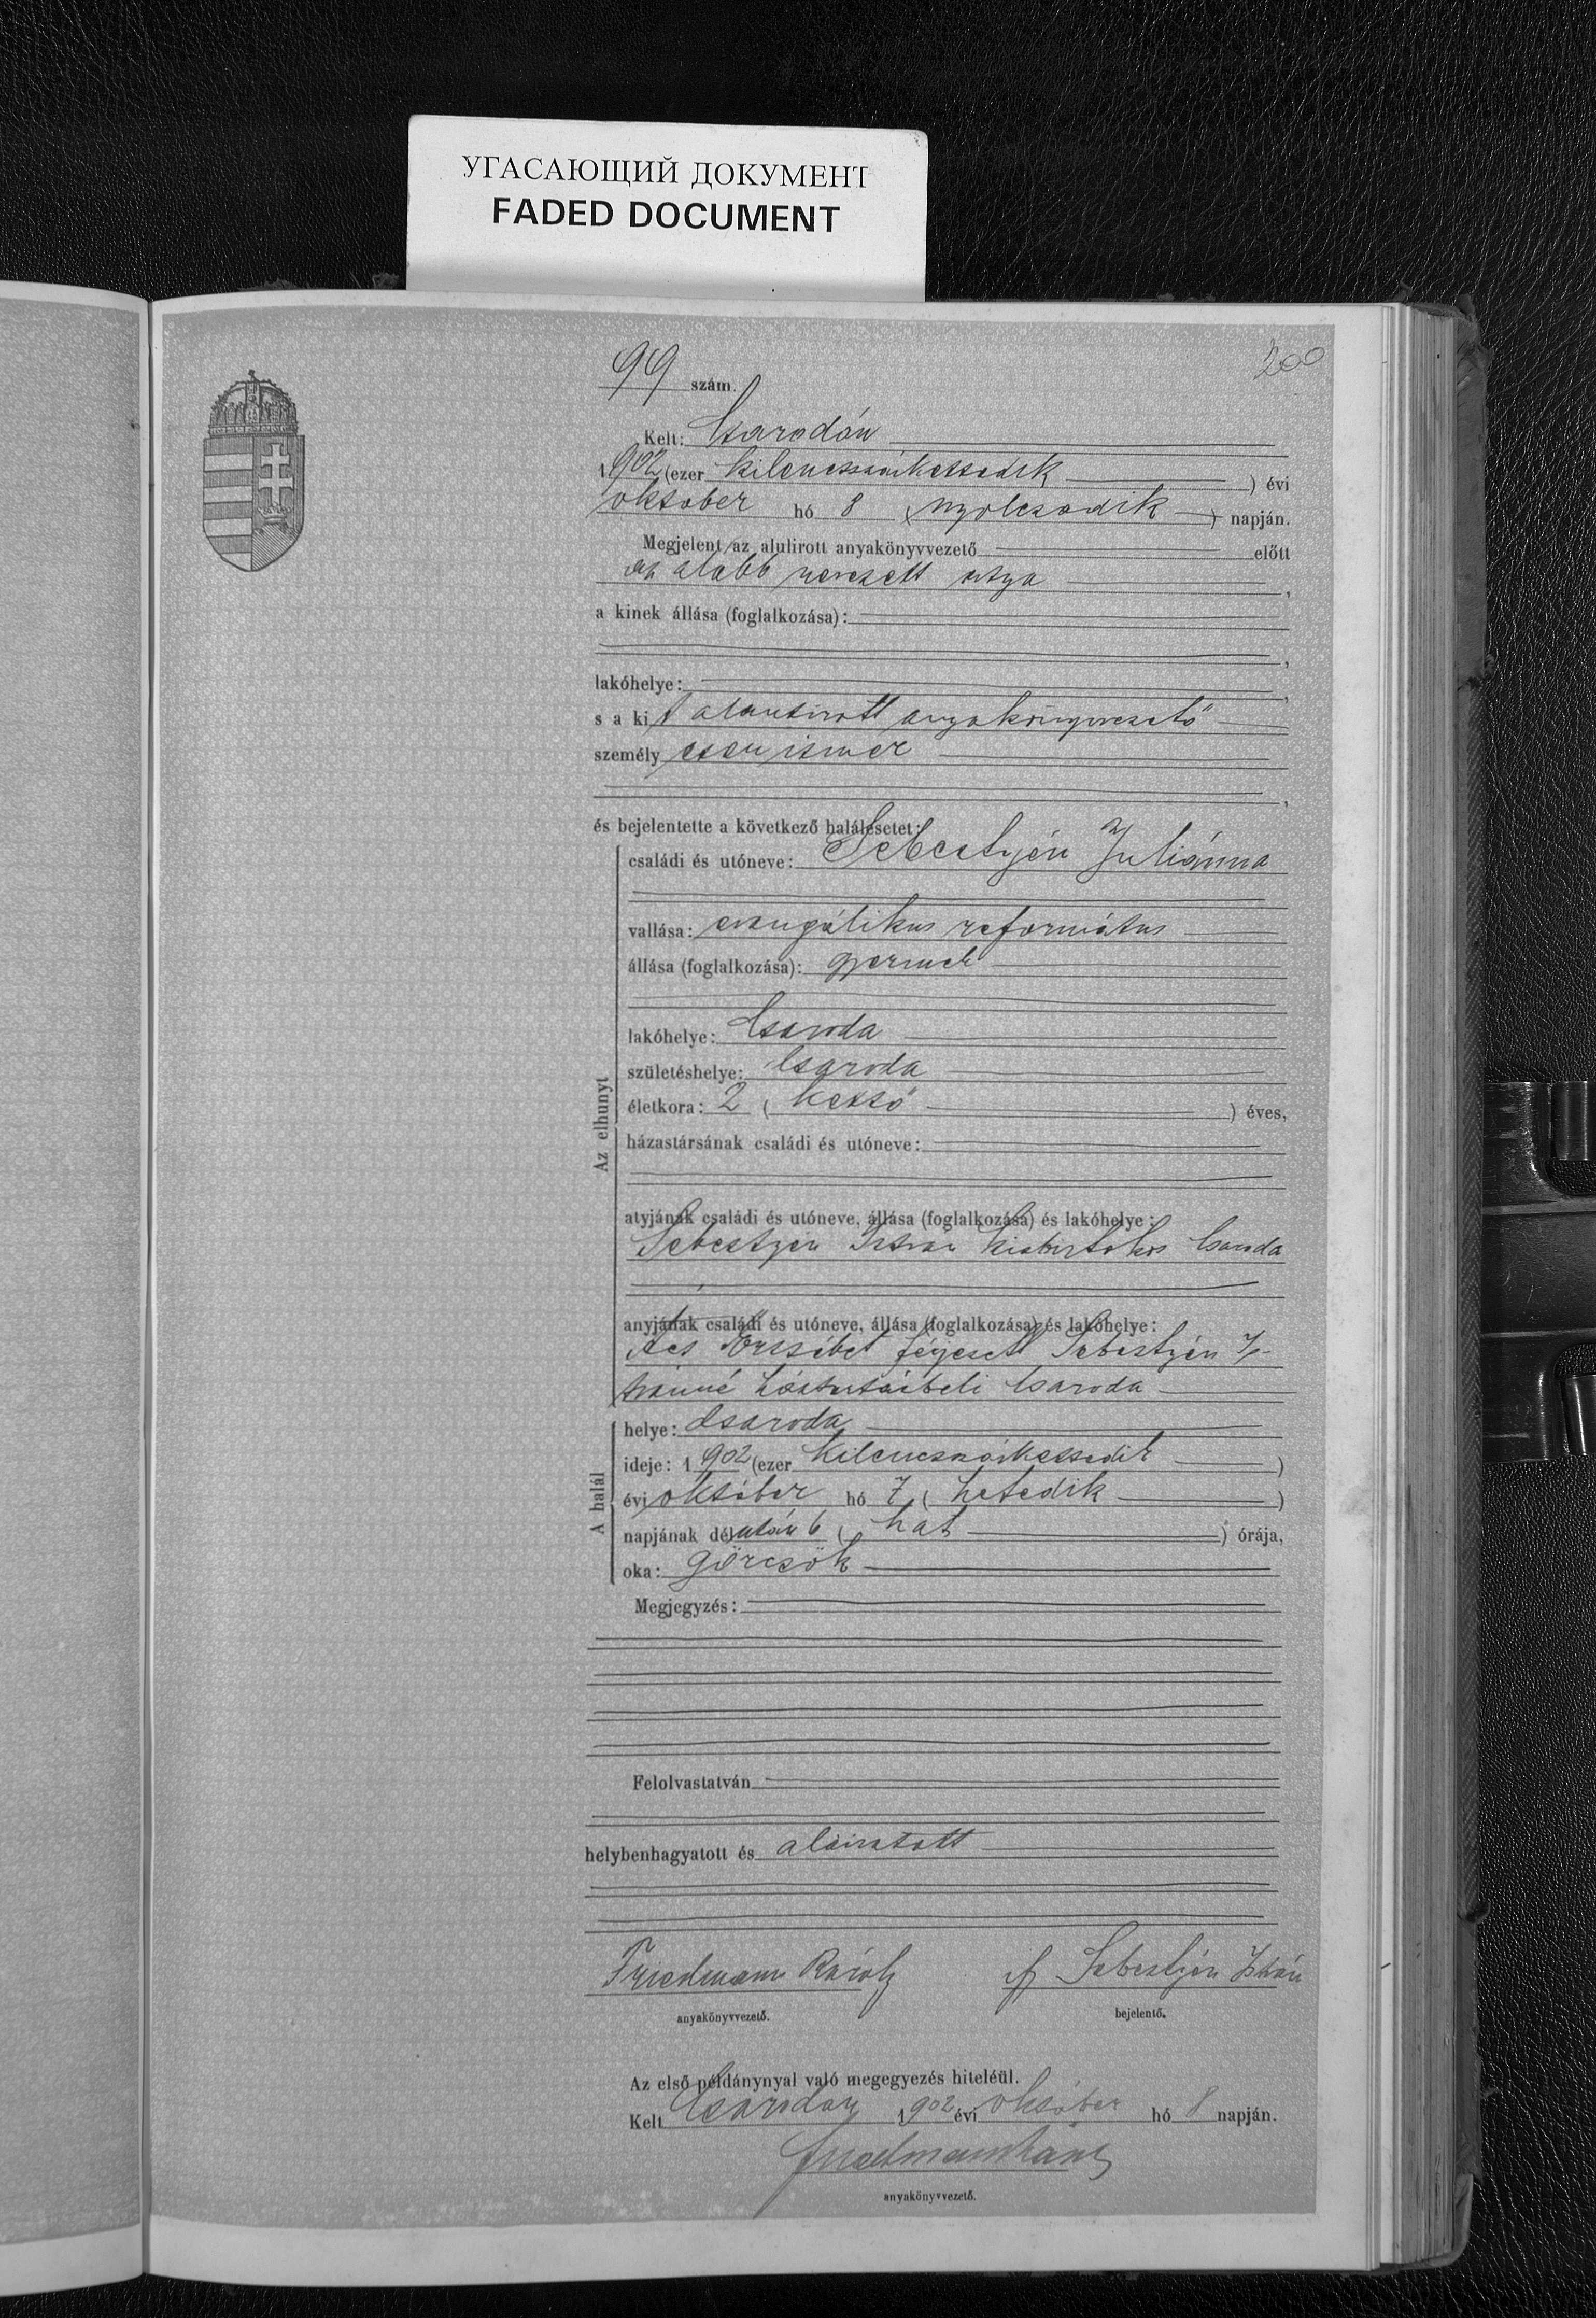 УГАСАЮЩИЙ ДОКУМЕНТ
FADED DOCUMENT
200
99 szám.
Kelt: Csarodán
1902 (ezer kilenczszázkettedik) évi
október hó 8 (nyolczadik) napján.
Megjelent az alulirott anyakönyvvezető előtt
az alább nevezett atya,
a kinek állása (foglalkozása):
,
lakóhelye: ,
s a kit alantirott anyakönyvvezető
személyesen ismer
,
és bejelentette a következő halálesetet:
Az elhunyt
családi és utóneve: Sebestyén Juliánna
vallása: evangélikus református
állása (foglalkozása): gyermek
lakóhelye: Csaroda
születéshelye: Csaroda
életkora: 2 (kettő) éves,
házastársának családi és utóneve:
atyjának családi és utóneve, állása (foglalkozása) és lakóhelye:
Sebestyén István kisbirtokos Csaroda
anyjának családi és utóneve, állása (foglalkozása) és lakóhelye:
Ács Erzsébet férjezett Sebestyén Is-
tvánné háztartásbeli Csaroda
A halál
helye: Csaroda
ideje: 1902 (ezer kilenczszázkettedik)
évi október hó 7 (hetedik)
napjának délután 6 (hat) órája,
oka: görcsök
Megjegyzés:
Felolvastatván
helybenhagyatott és aláiratott
Friedmann Károly if Sebestyén István
anyakönyvvezető. bejelentő.
Az első példánynyal való megegyezés hiteléül.
Kelt Csarodán 1902 évi október hó 8 napján.
Friedmann Károly
anyakönyvvezető.